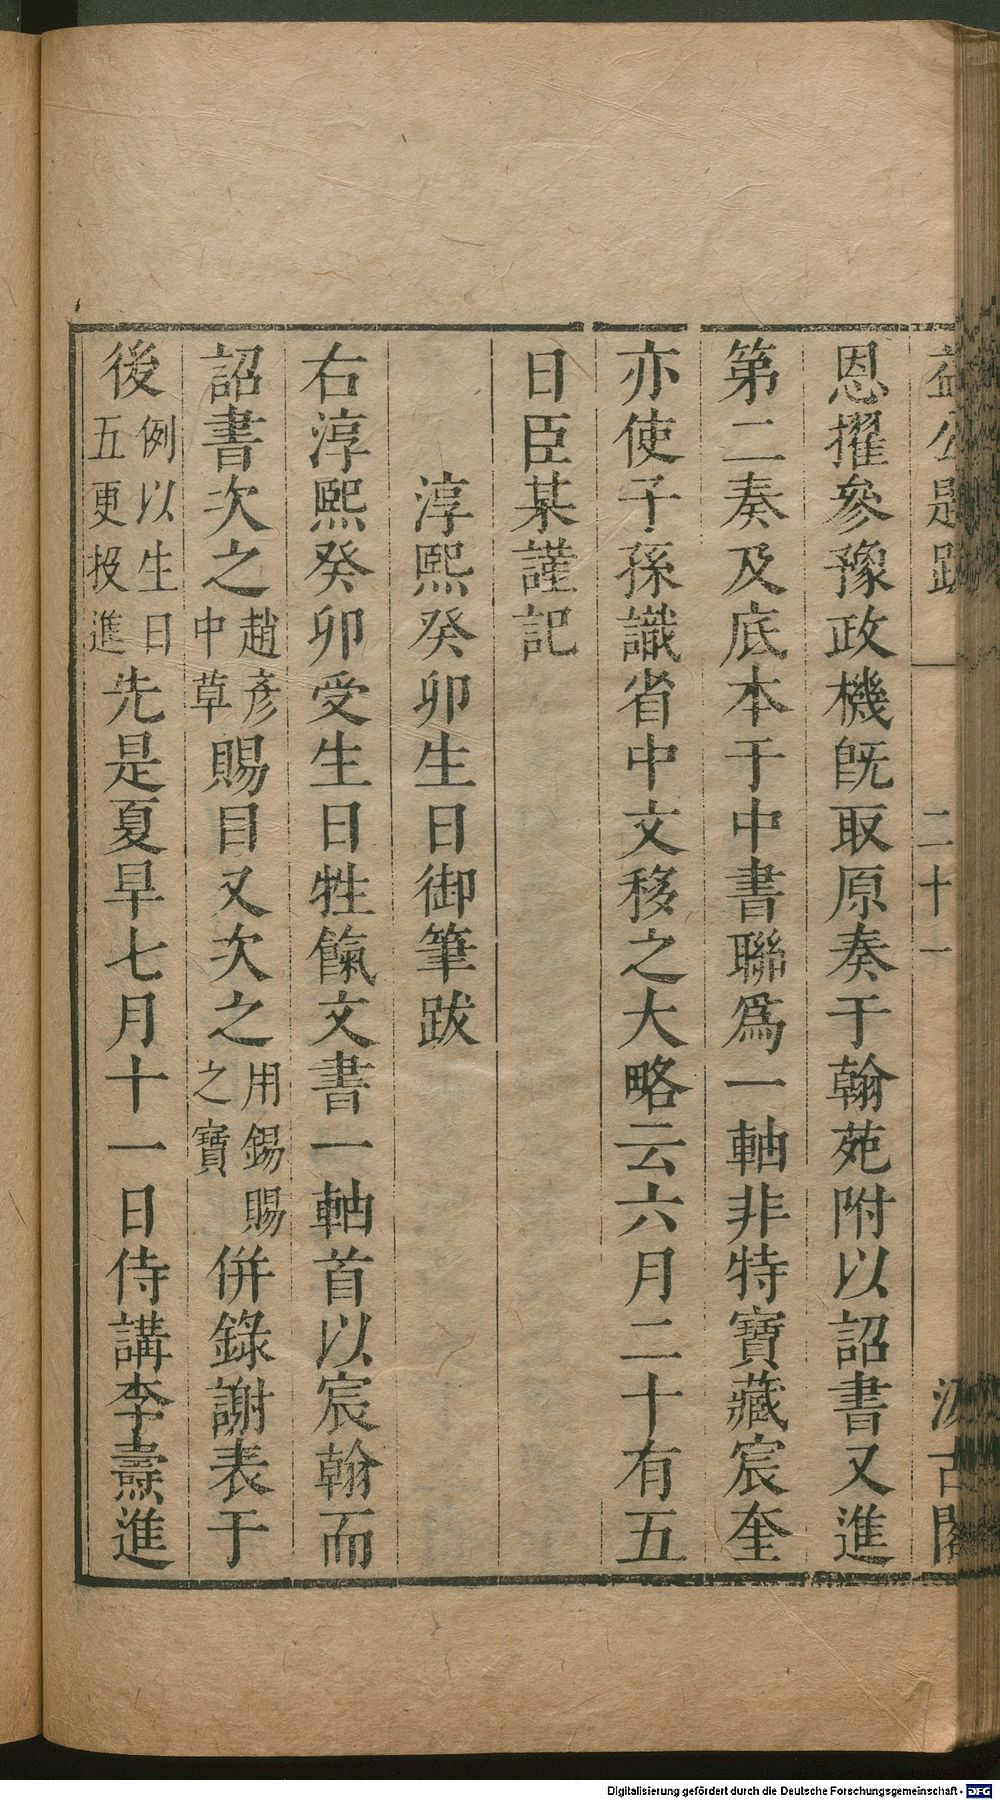 益公題跋 一 二十一 汲古閣
恩擢參豫政機旣取原奏于翰苑附以詔書又進
第二奏及底本于中書聯爲一軸非特寶藏宸奎
亦使子孫識省中文移之大略云六月二十有五
日臣某謹記
淳熙癸卯生日御筆跋
右淳熙癸卯受生日牲餼文書一軸首以宸翰而
詔書次之趙彥中草賜目又次之用錫賜之寶併錄謝表于
後例以生日五更投進先是夏旱七月十一日侍講李燾進
Digitalisierung gefördert durch die Deutsche Forschungsgemeinschaft - DFG